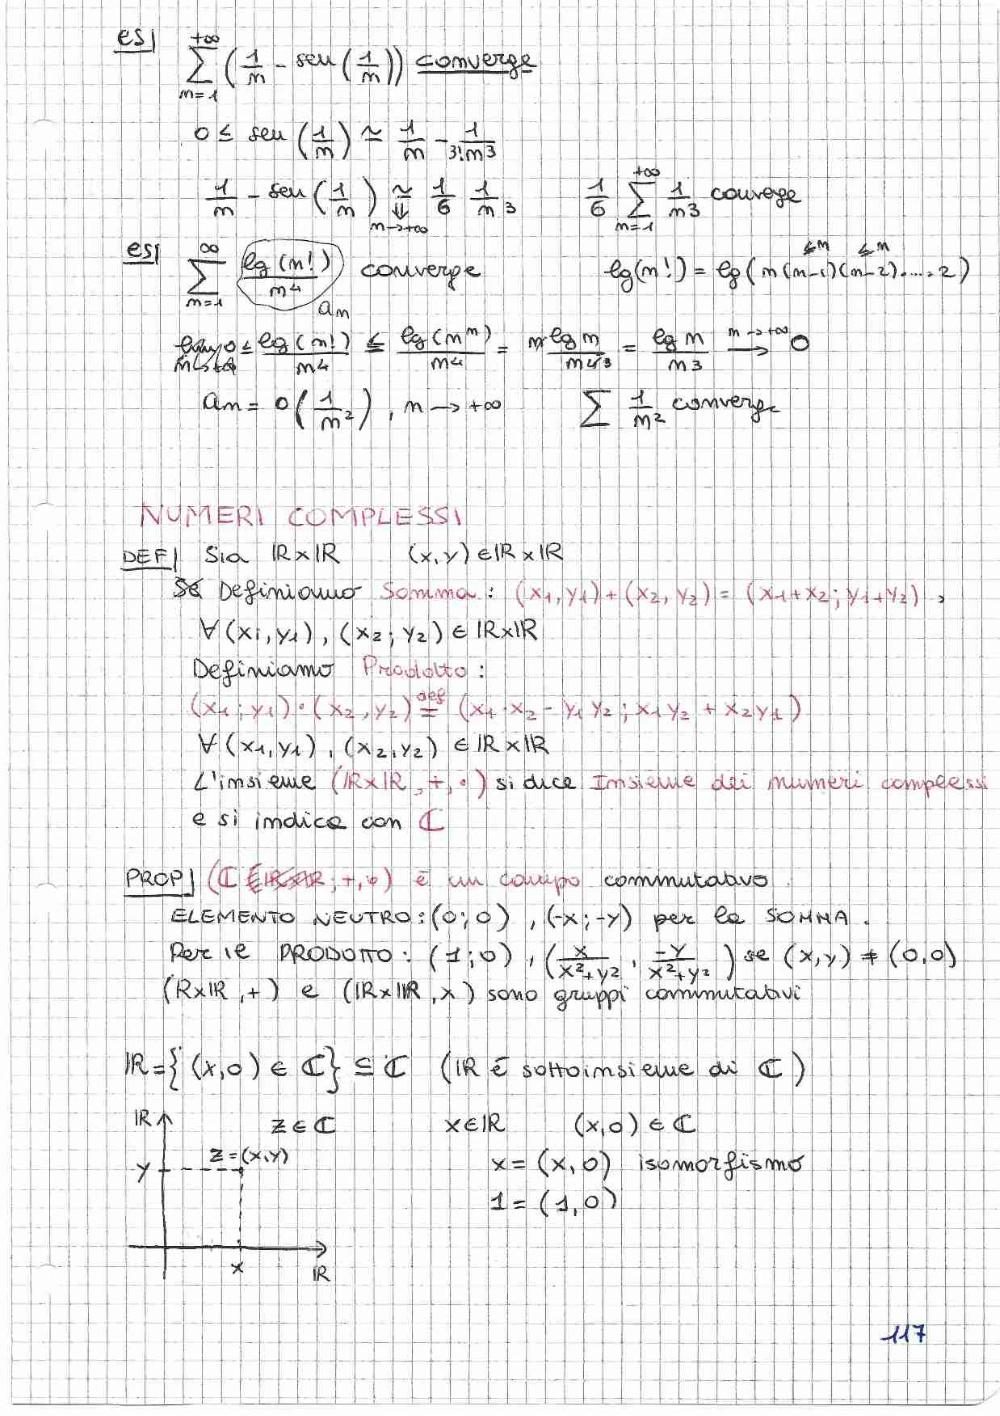 es| \sum_{n=1}^{+∞} (1/n - sen(1/n)) converge
0 ≤ sen(1/n) ≃ 1/n - 1/(3! n^3)
1/n - sen(1/n) ≃ 1/6 1/n^3 ⇓ n→+∞ 1/6 \sum_{n=1}^{+∞} 1/n^3 converge
es| \sum_{n=1}^{∞} lg(n!)/n^4 converge a_n lg(n!) = lg(n(n-1)(n-2)....2) ≤n ≤n
0 ≤ lg(n!)/n^4 ≤ lg(n^n)/n^4 = n lg n/n^4 3 = lg n/n^3 n→+∞ → 0
a_n = o(1/n^2), n → +∞ ∑ 1/n^2 converge
NUMERI COMPLESSI
DEF| Sia ℝ×ℝ (x,y) ∈ ℝ×ℝ
Definiamo Somma: (x1,y1)+(x2,y2) = (x1+x2; y1+y2),
∀(x1,y1), (x2; y2) ∈ ℝ×ℝ
Definiamo Prodotto:
(x1; y1)·(x2,y2) def= (x1·x2 - y1 y2; x1y2 + x2y1)
∀(x1,y1), (x2,y2) ∈ ℝ×ℝ
L'insieme (ℝ×ℝ, +, ·) si dice Insieme dei numeri complessi
e si indica con ℂ
PROP| (ℂ ; +, ·) è un campo commutativo
ELEMENTO NEUTRO: (0;0), (-x;-y) per la SOMMA.
Per il PRODOTTO: (1;0), (x/(x²+y²), -y/(x²+y²)) se (x,y) ≠ (0,0)
(R×ℝ,+) e (ℝ×ℝ,×) sono gruppi commutativi
ℝ={(x,0) ∈ ℂ} ⊆ ℂ (ℝ è sottoinsieme di ℂ)
ℝ z ∈ ℂ x∈ℝ (x,0) ∈ ℂ
z=(x,y)
y x = (x,0) isomorfismo
1 = (1,0)
x ℝ
117